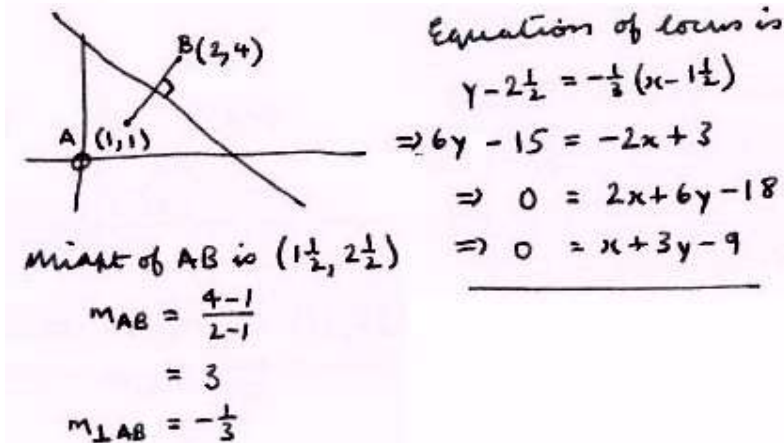 B(2,4)
A (1,1)
Midpt of AB is (1½, 2½)
m_AB = (4-1)/(2-1)
= 3
m_⊥AB = -⅓
Equation of locus is
y - 2½ = -⅓ (x - 1½)
⇒ 6y - 15 = -2x + 3
⇒ 0 = 2x + 6y - 18
⇒ 0 = x + 3y - 9